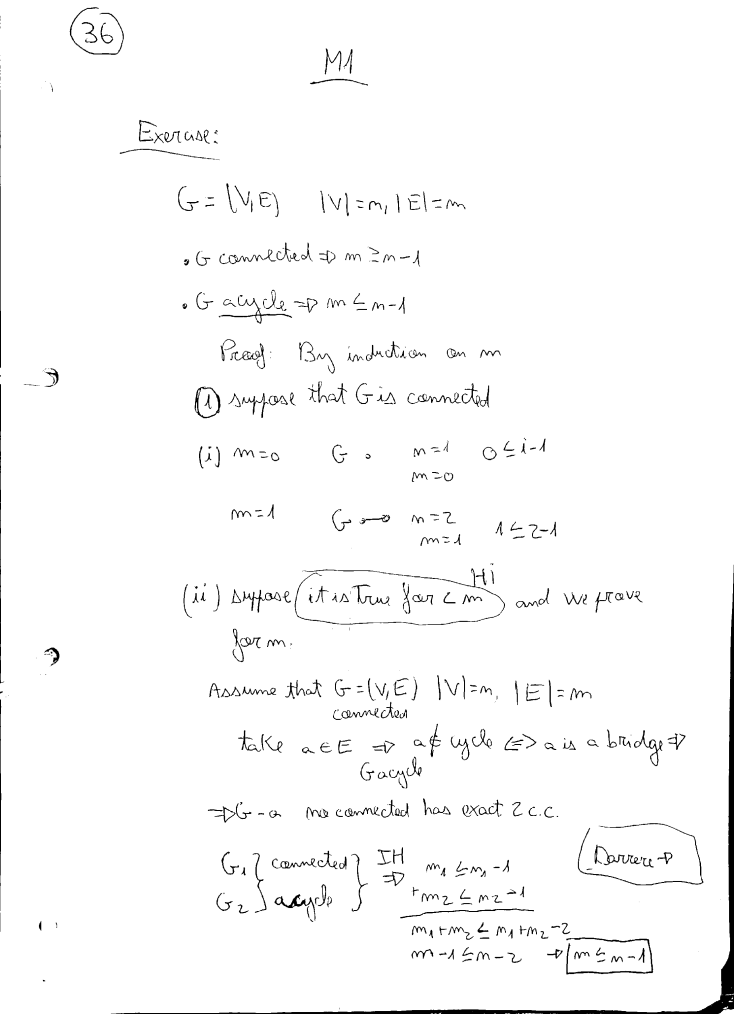 36
M1
Exercise:
G = (V,E) |V|=n, |E|=m
• G connected ⇒ m ≥ n-1
• G acycle ⇒ m ≤ n-1
Proof: By induction on m
① suppose that G is connected
(i) m=0 G n=1 0 ≤ 1-1
m=0
m=1 G n=2 1 ≤ 2-1
m=1
Hi
(ii) suppose it is True for < m and we prove
for m.
Assume that G=(V,E) |V|=n, |E|=m
connected
take a ∈ E ⇒ a ∉ cycle <=> a is a bridge ⇒
G acycle
⇒ G-a no connected has exact 2 c.c.
G₁ } connected } IH ⇒ m₁ ≤ n₁-1
G₂ } acycle } + m₂ ≤ n₂-1
Darrere ⇒
m₁+m₂ ≤ n₁+n₂-2
m-1 ≤ n-2 ⇒ m ≤ n-1